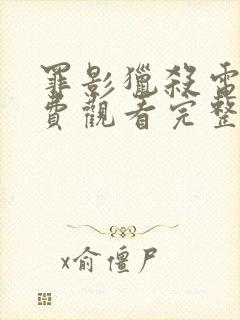 罪影獵殺電
費觀看完整
x俞僵尸